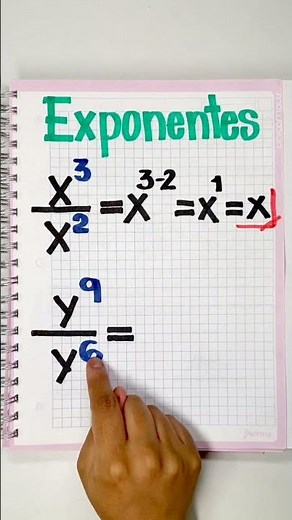 Exponentes
x³/x² = x³⁻² = x¹ = x
y⁹/y⁶ =